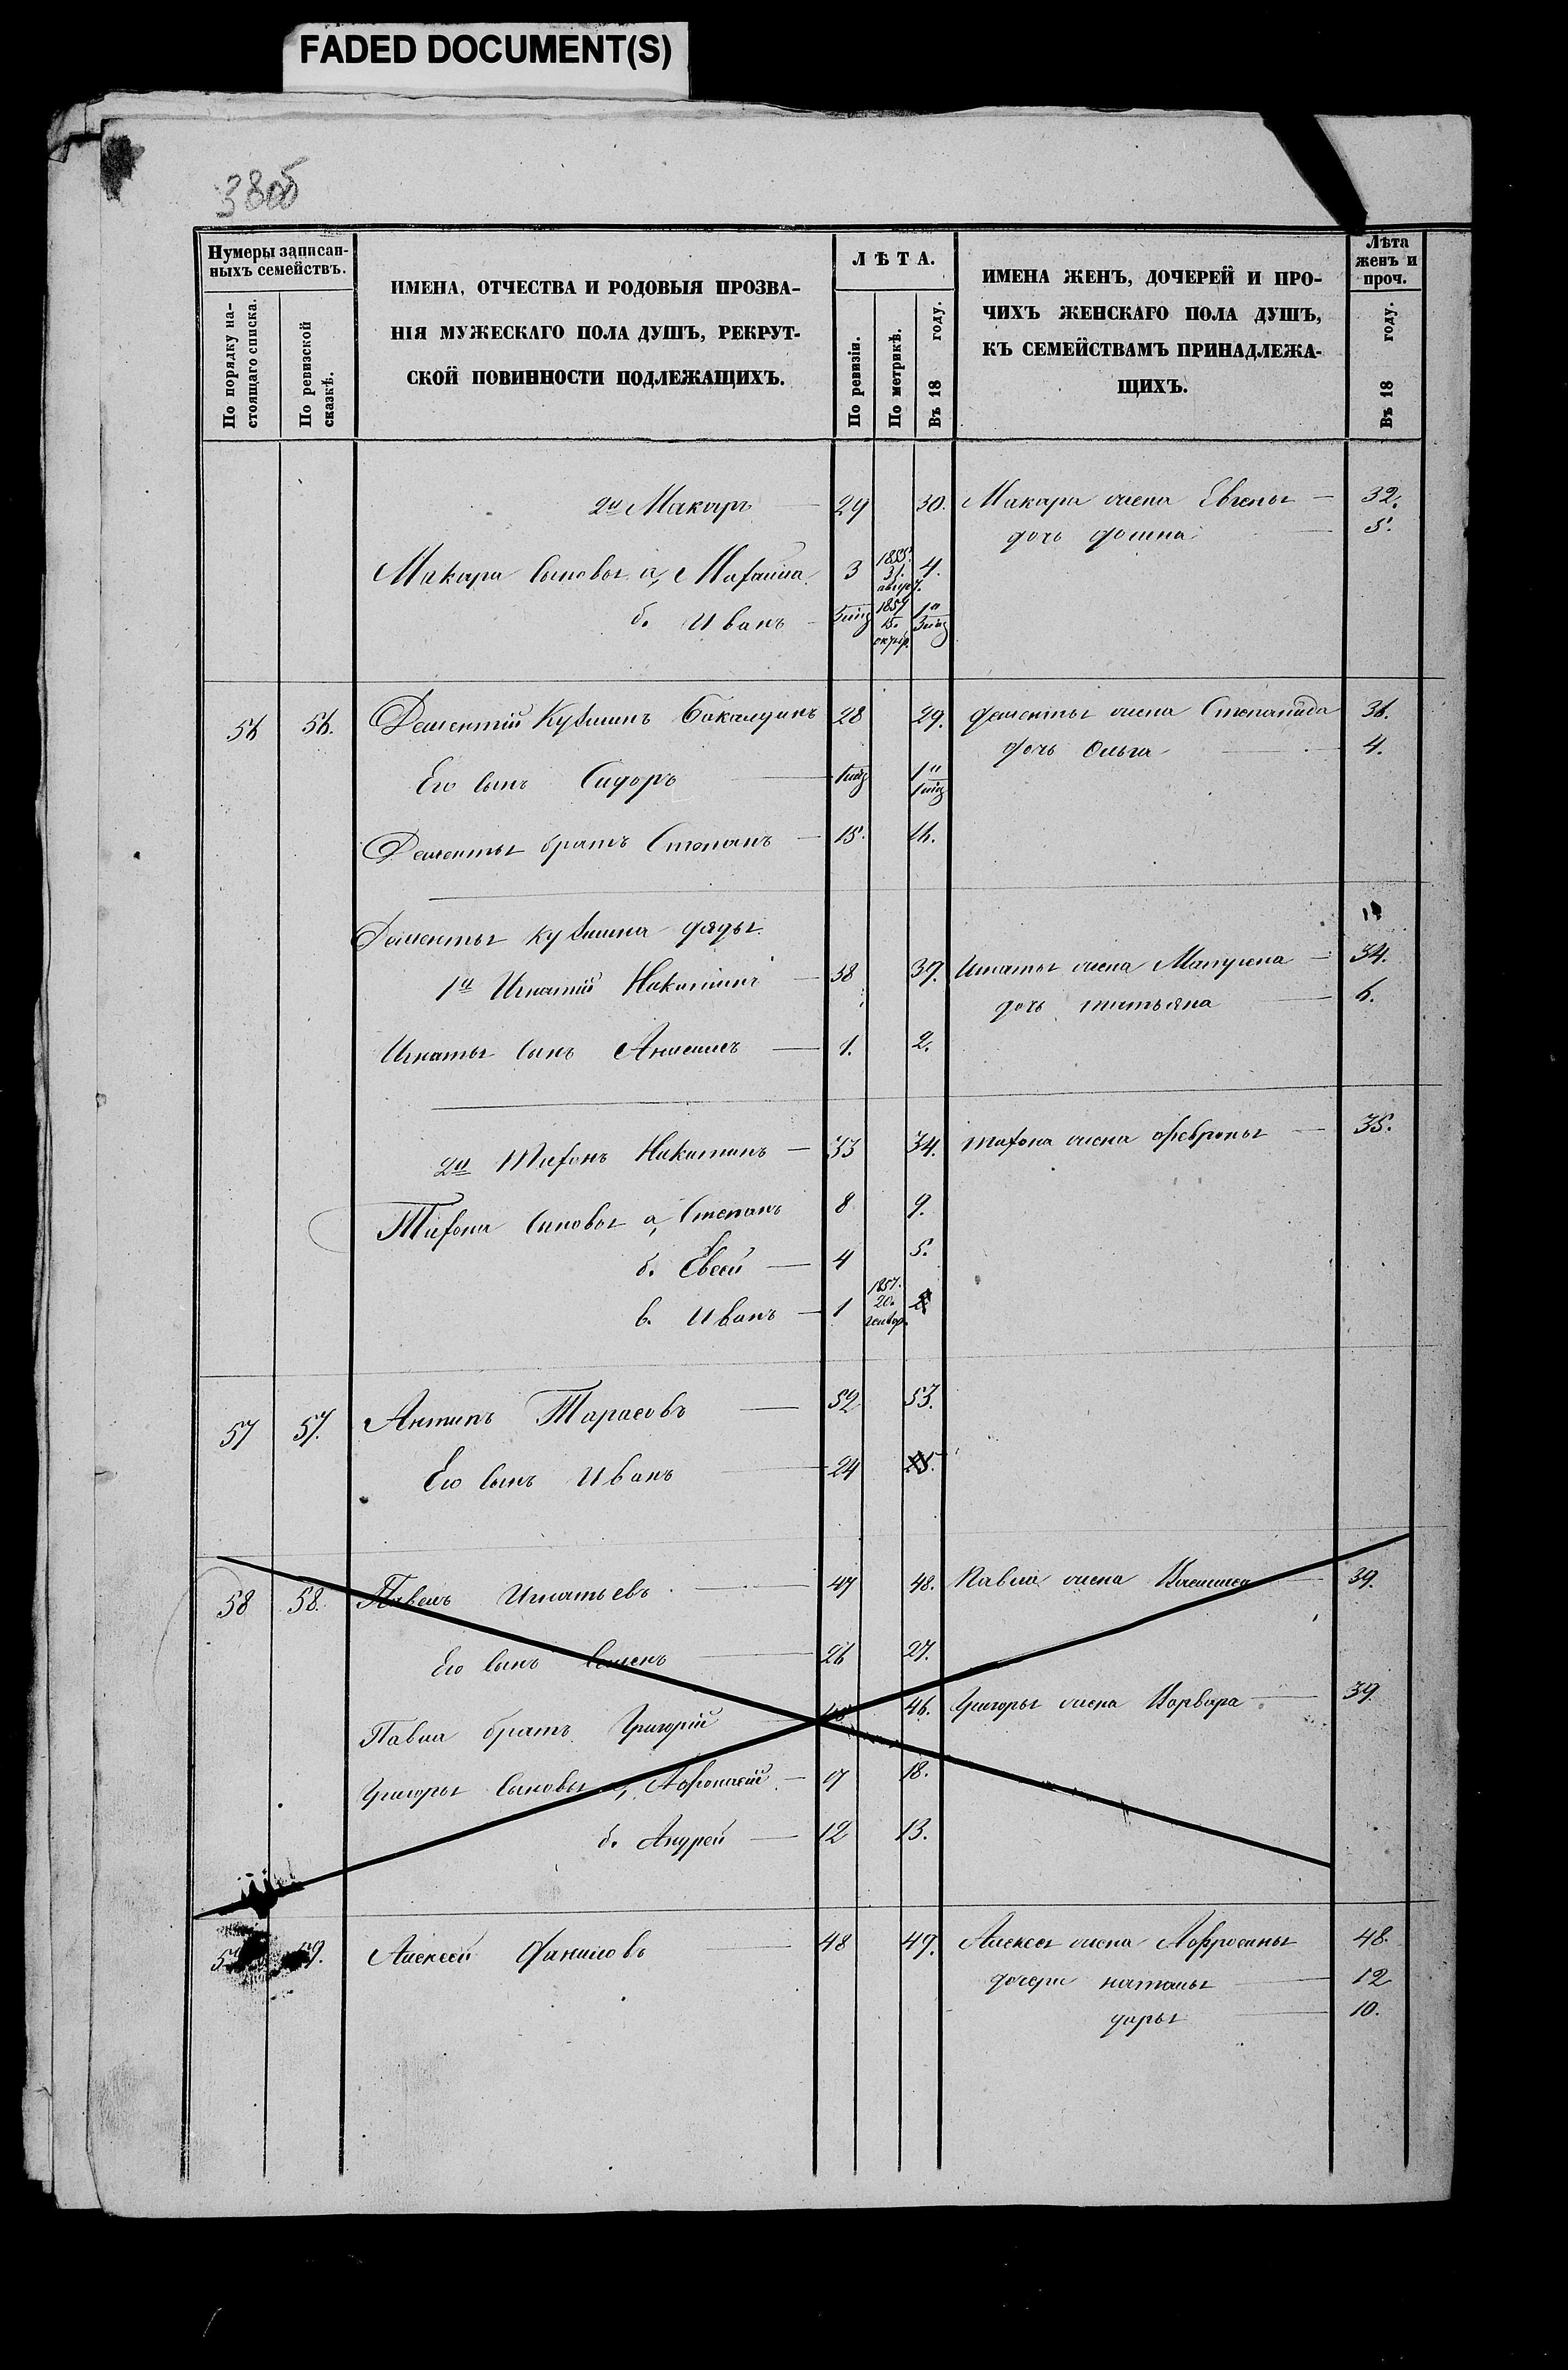 FADED DOCUMENT(S)
38об
Нумеры записан-
ныхъ семействъ.
По порядку на-
стоящаго списка.
По ревизской
сказкѣ.
ИМЕНА, ОТЧЕСТВА И РОДОВЫЯ ПРОЗВА-
НІЯ МУЖЕСКАГО ПОЛА ДУШЪ, РЕКРУТ-
СКОЙ ПОВИННОСТИ ПОДЛЕЖАЩИХЪ.
ЛѢТА.
По ревизіи.
По метрикѣ.
Въ 18 году.
ИМЕНА ЖЕНЪ, ДОЧЕРЕЙ И ПРО-
ЧИХЪ ЖЕНСКАГО ПОЛА ДУШЪ,
КЪ СЕМЕЙСТВАМЪ ПРИНАДЛЕЖА-
ЩИХЪ.
Лѣта
женъ и
проч.
Въ 18 году.
2й Макаръ 29 30. Макара жена Евгенья 32.
дочь Фомина 5.
Макара сыновья а, 3 1855. 31. август. 4.
б. Иванъ 1857 15. октяб.
56 56. Дементій Кузминъ 28 29. Дементья жена Степанида 36.
дочь Ольга 4.
Его сынъ Сидоръ
Дементья братъ Степанъ 15. 16.
Дементья Кузмина дяды
1й Игнатій Никитинъ 38 39. Игнатья жена 34.
дочь татьяна 6.
Игнатья сынъ Анисимъ 1. 2.
2й Тихонъ Никитинъ 33 34. Тихона жена Февронья 35.
Тихона сыновья а, Степанъ 8 9.
б. Евсей 4 5.
в. Иванъ 1 1857. 20. генвар.
57 57. Антипъ Тарасовъ 52 53.
Его сынъ Иванъ 24 25.
58 58. Павелъ Игнатьевъ 47 48. Павла жена Василиса 39.
Его сынъ Семенъ 26 27.
Павла братъ Григорій 45 46. Григорья жена Варвара 39.
Григорья сыновья а, Афонасей 17 18.
б. Андрей 12 13.
59 59. Алексей Даниловъ 48 49. Алексея жена Афросинья 48.
дочери наталья 12
дарья 10.